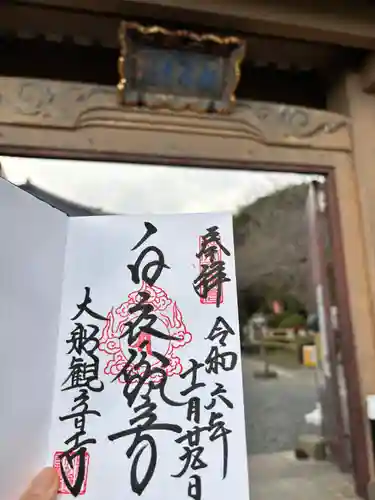 奉拝
令和六年
十一月廿九日
白衣観音
大船観音寺